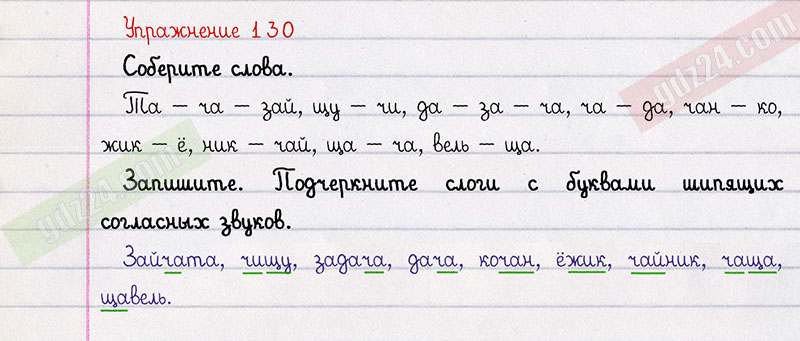 Упражнение 130
Соберите слова.
Та – ча – зай, щу – чи, да – за – ча, ча – да, чан – ко,
жик – ё, ник – чай, ща – ча, вель – ща.
Запишите. Подчеркните слоги с буквами шипящих
согласных звуков.
Зайчата, чищу, задача, дача, кочан, ёжик, чайник, чаща,
щавель.
gdz24.com
gdz24.com